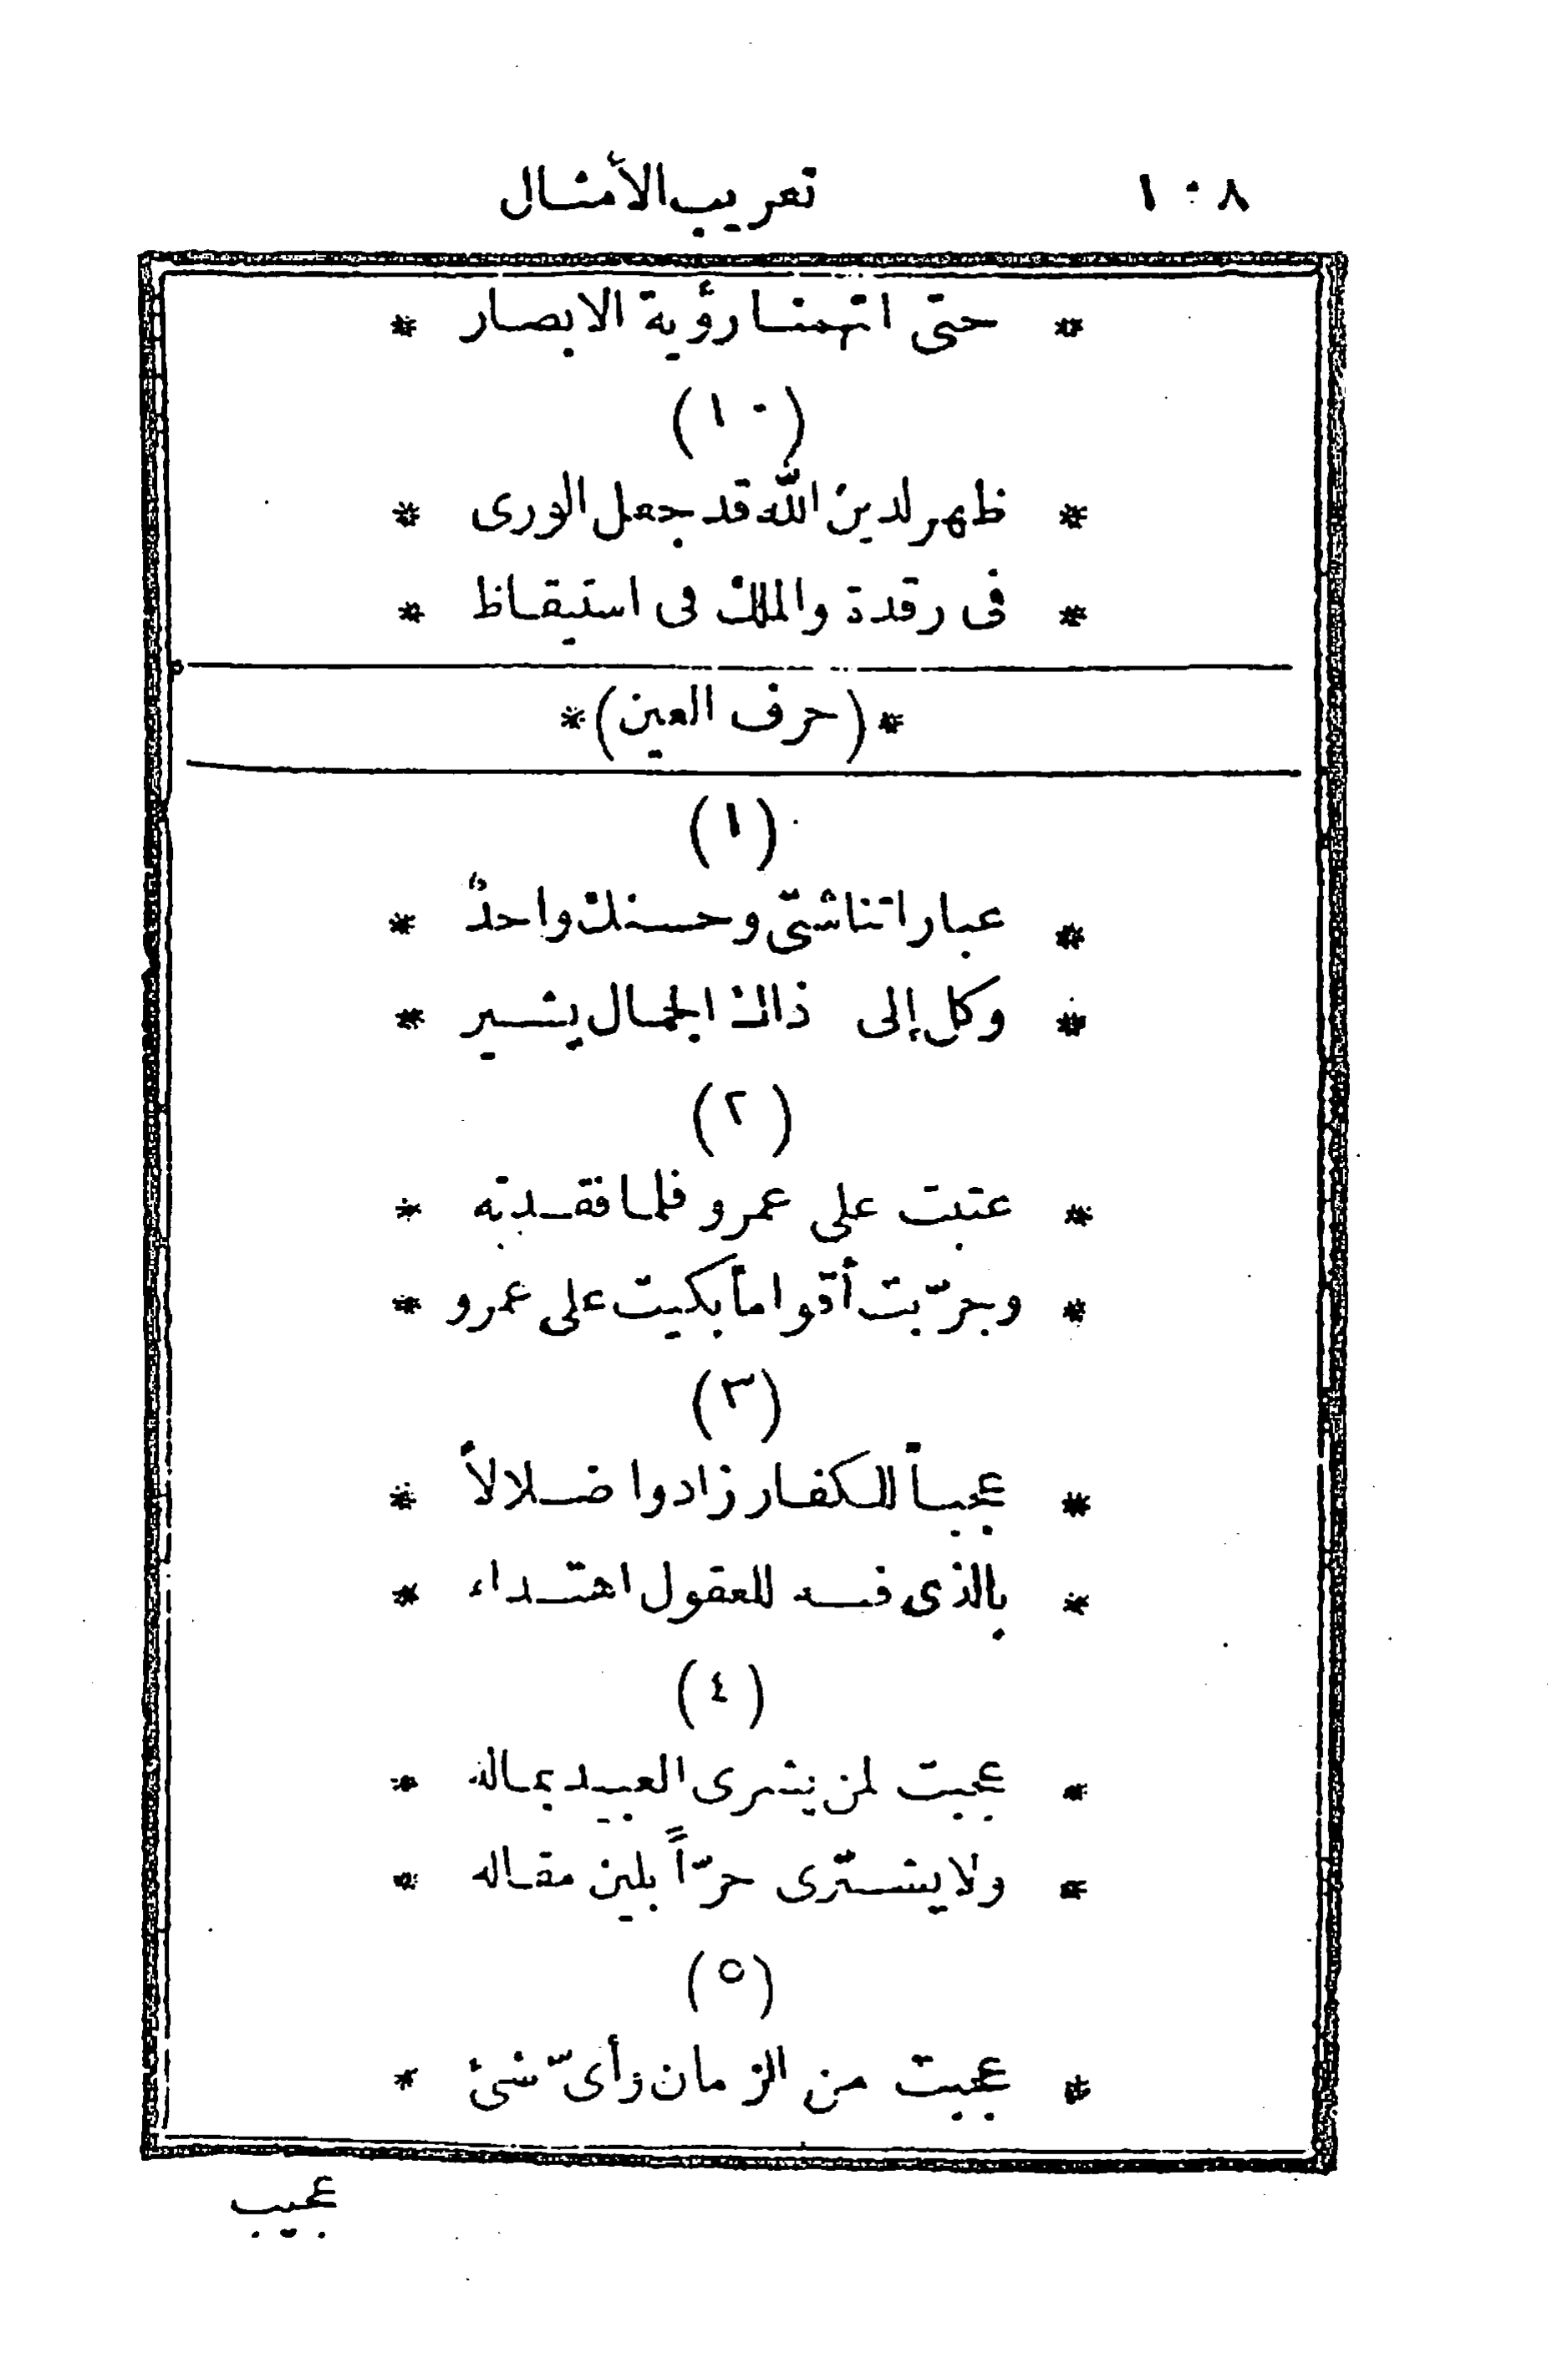 ١٠٨ تعريب الأمثال
* حتى اتهمنا رؤية الابصار *
(١٠)
* ظهر لدين الله قد جعل الورى *
* فى رقدة والملك فى استيقاظ *
*(حرف العين)*
(١)
* عباراتنا شتى وحسنك واحدٌ *
* وكل إلى ذاك الجمال يشير *
(٢)
* عتبت على عمرو فلما فقدته *
* وجرّبت أقواماً بكيت على عمرو *
(٣)
* عجباً للكفار زادوا ضلالاً *
* بالذى فيه للعقول اهتداء *
(٤)
* عجبت لمن يشرى العبيد بماله *
* ولا يشترى حرّاً بلين مقاله *
(٥)
* عجبت من الزمان وأىّ شئ *
عجيب